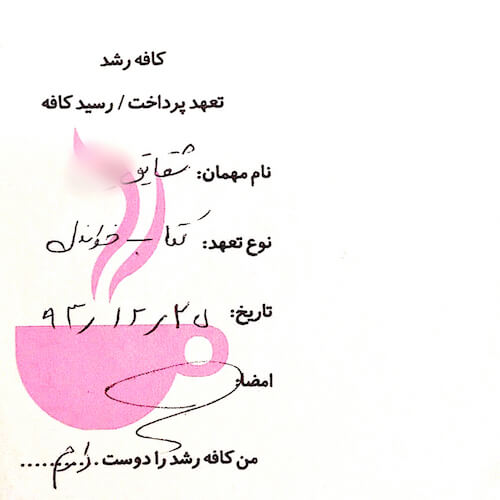 کافه رشد
تعهد پرداخت / رسید کافه
نام مهمان: شقایق
نوع تعهد: کتاب خواندن
تاریخ: ۹۳/۱۲/۲۵
امضا:
من کافه رشد را دوست دارم